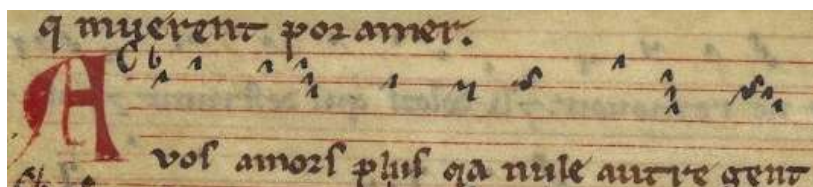 q muerent por amer.
A vos amors plus qa nule autre gent